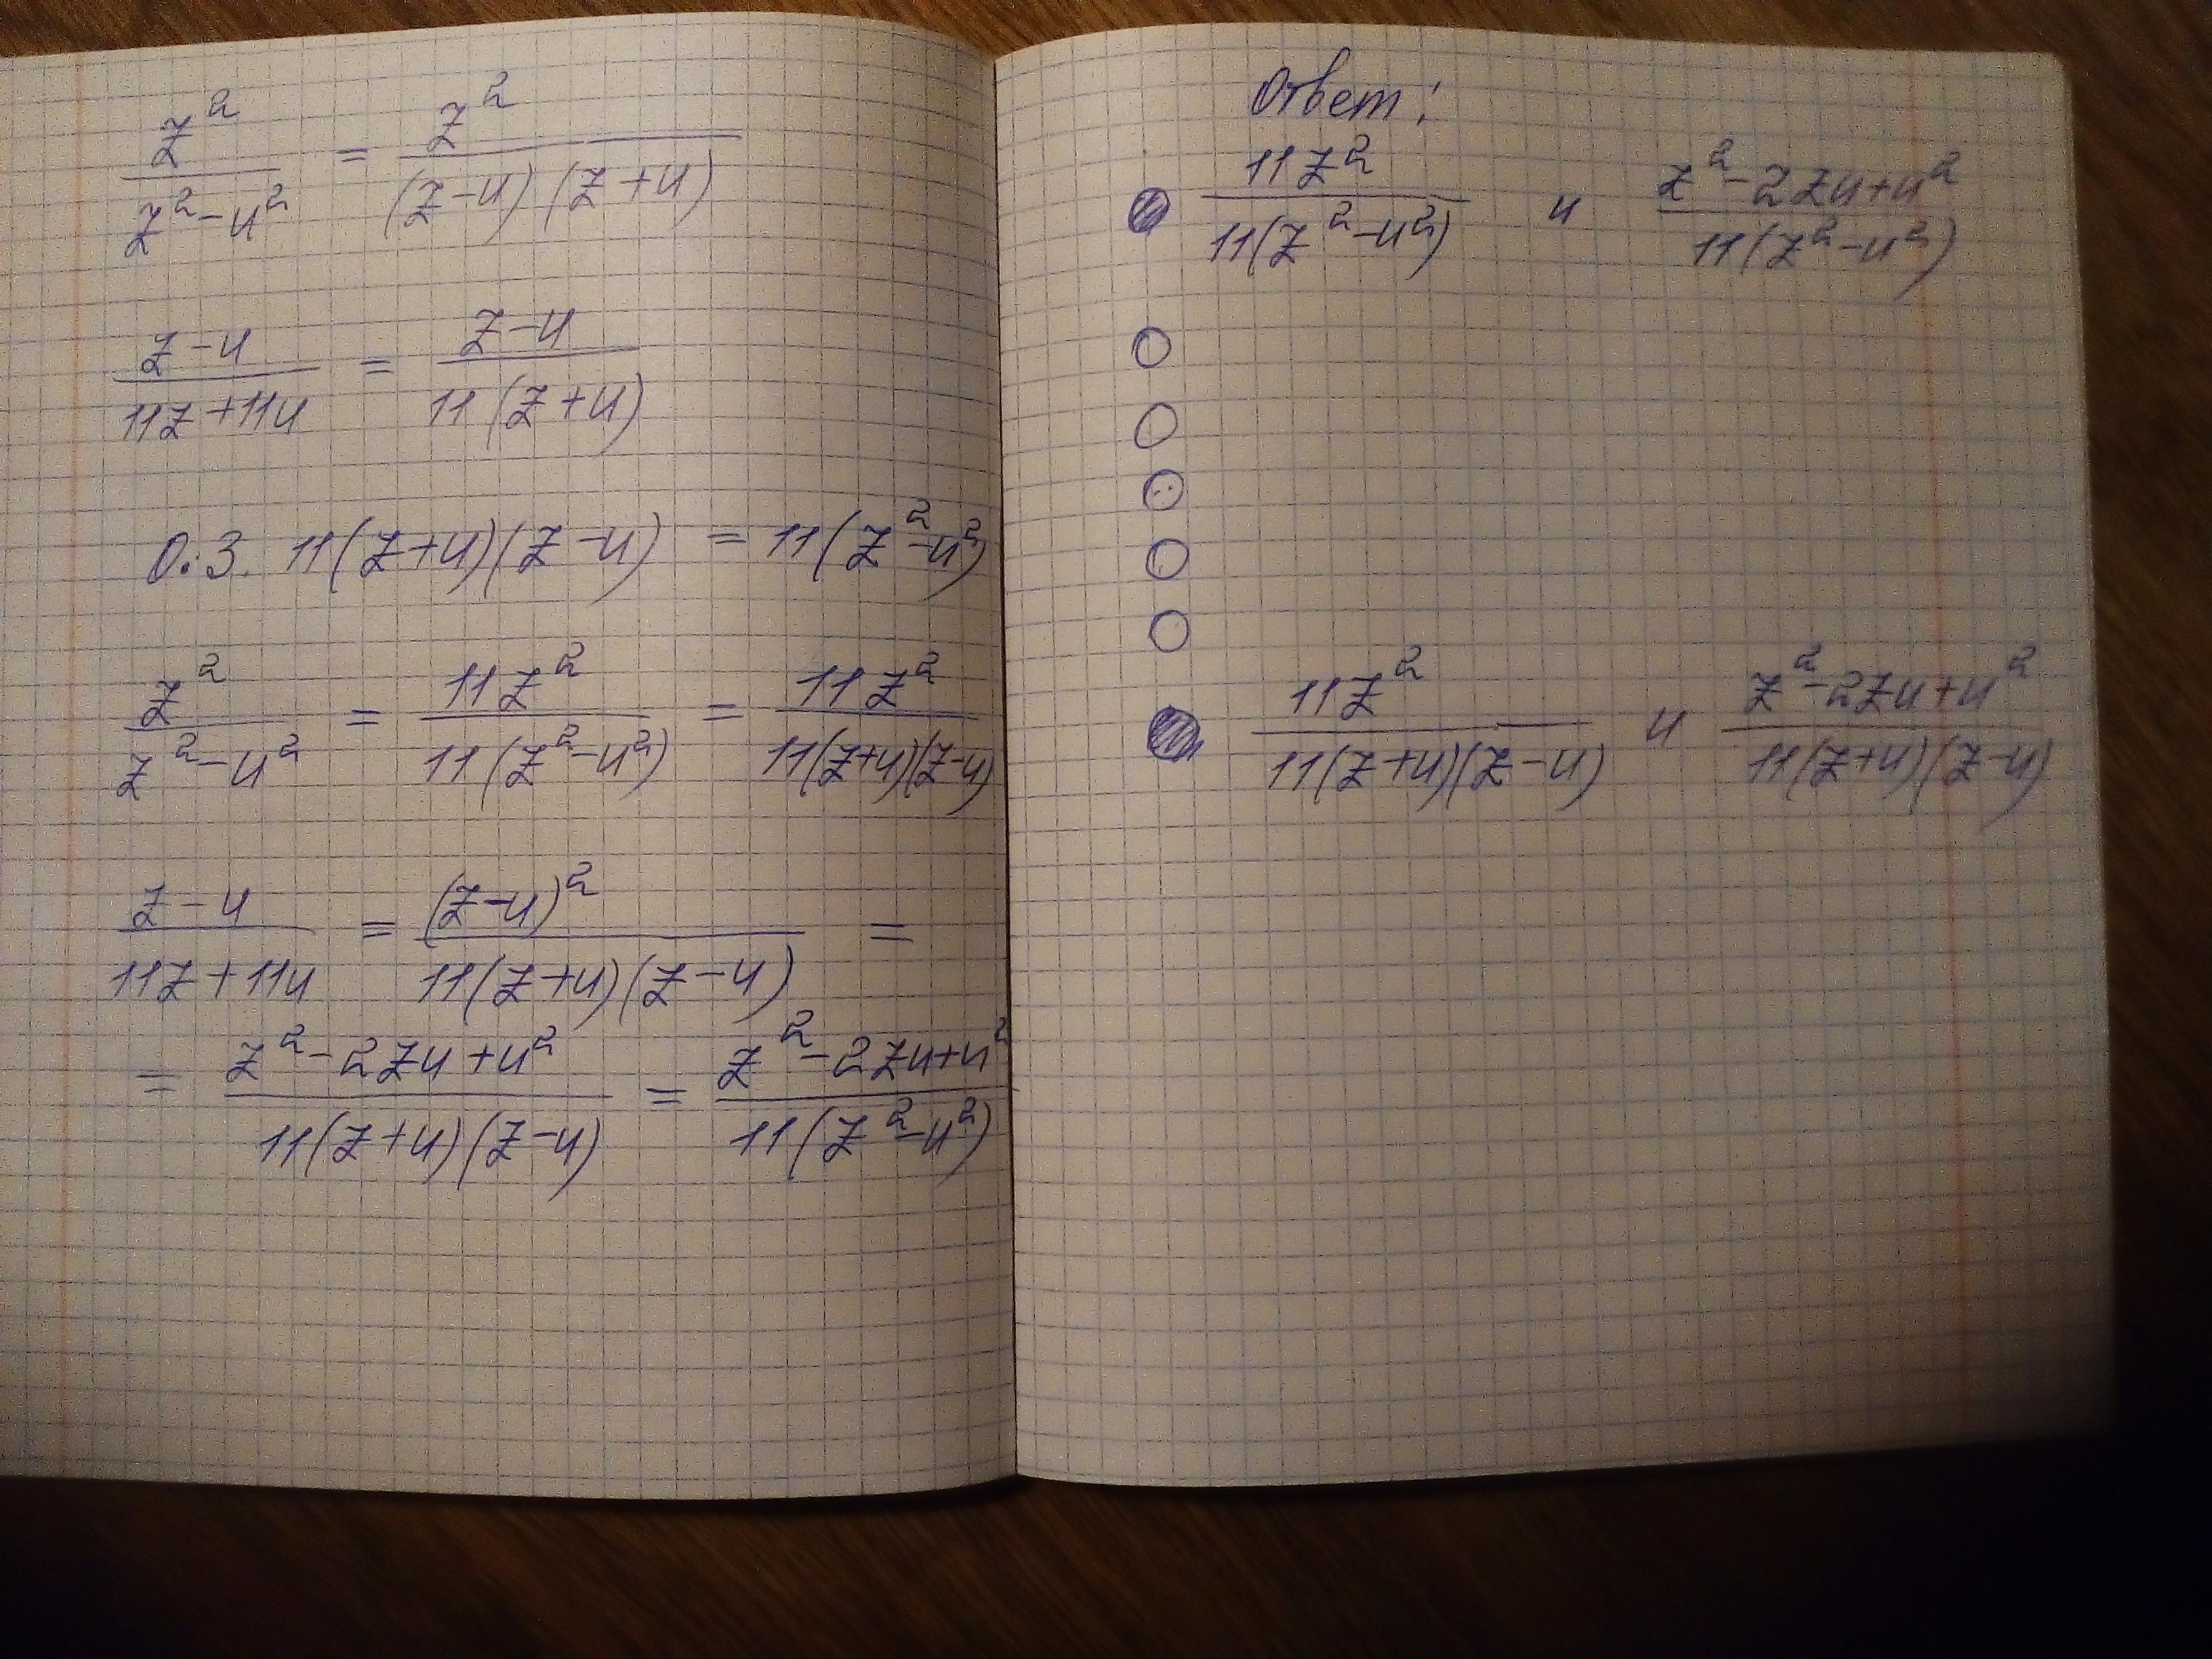 z²/(z²-u²) = z²/((z-u)(z+u))
(z-u)/(11z+11u) = (z-u)/(11(z+u))
О.З. 11(z+u)(z-u) = 11(z²-u²)
z²/(z²-u²) = 11z²/(11(z²-u²)) = 11z²/(11(z+u)(z-u))
(z-u)/(11z+11u) = (z-u)²/(11(z+u)(z-u)) =
= (z²-2zu+u²)/(11(z+u)(z-u)) = (z²-2zu+u²)/(11(z²-u²))
Ответ:
11z²/(11(z²-u²)) и (z²-2zu+u²)/(11(z²-u²))
11z²/(11(z+u)(z-u)) и (z²-2zu+u²)/(11(z+u)(z-u))